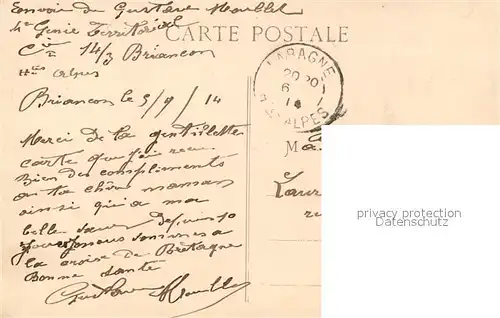 Envoi de Gustave Moullet
4e Genie Territorial
CARTE POSTALE
Cie 14/3 Briançon
Htes Alpes
LARAGNE
20 20
6
14
Htes ALPES
Briancon le 5/9/14
Merci de ta gentillette
carte que j'ai reçu
Bien des compliments
à ta chère maman
ainsi qu'a ma
belle soeur depuis 10
jours nous sommes a
la croise de Bretagne
Bonne Sante
Gustave Moullet
Ma
Laur
privacy protection
Datenschutz